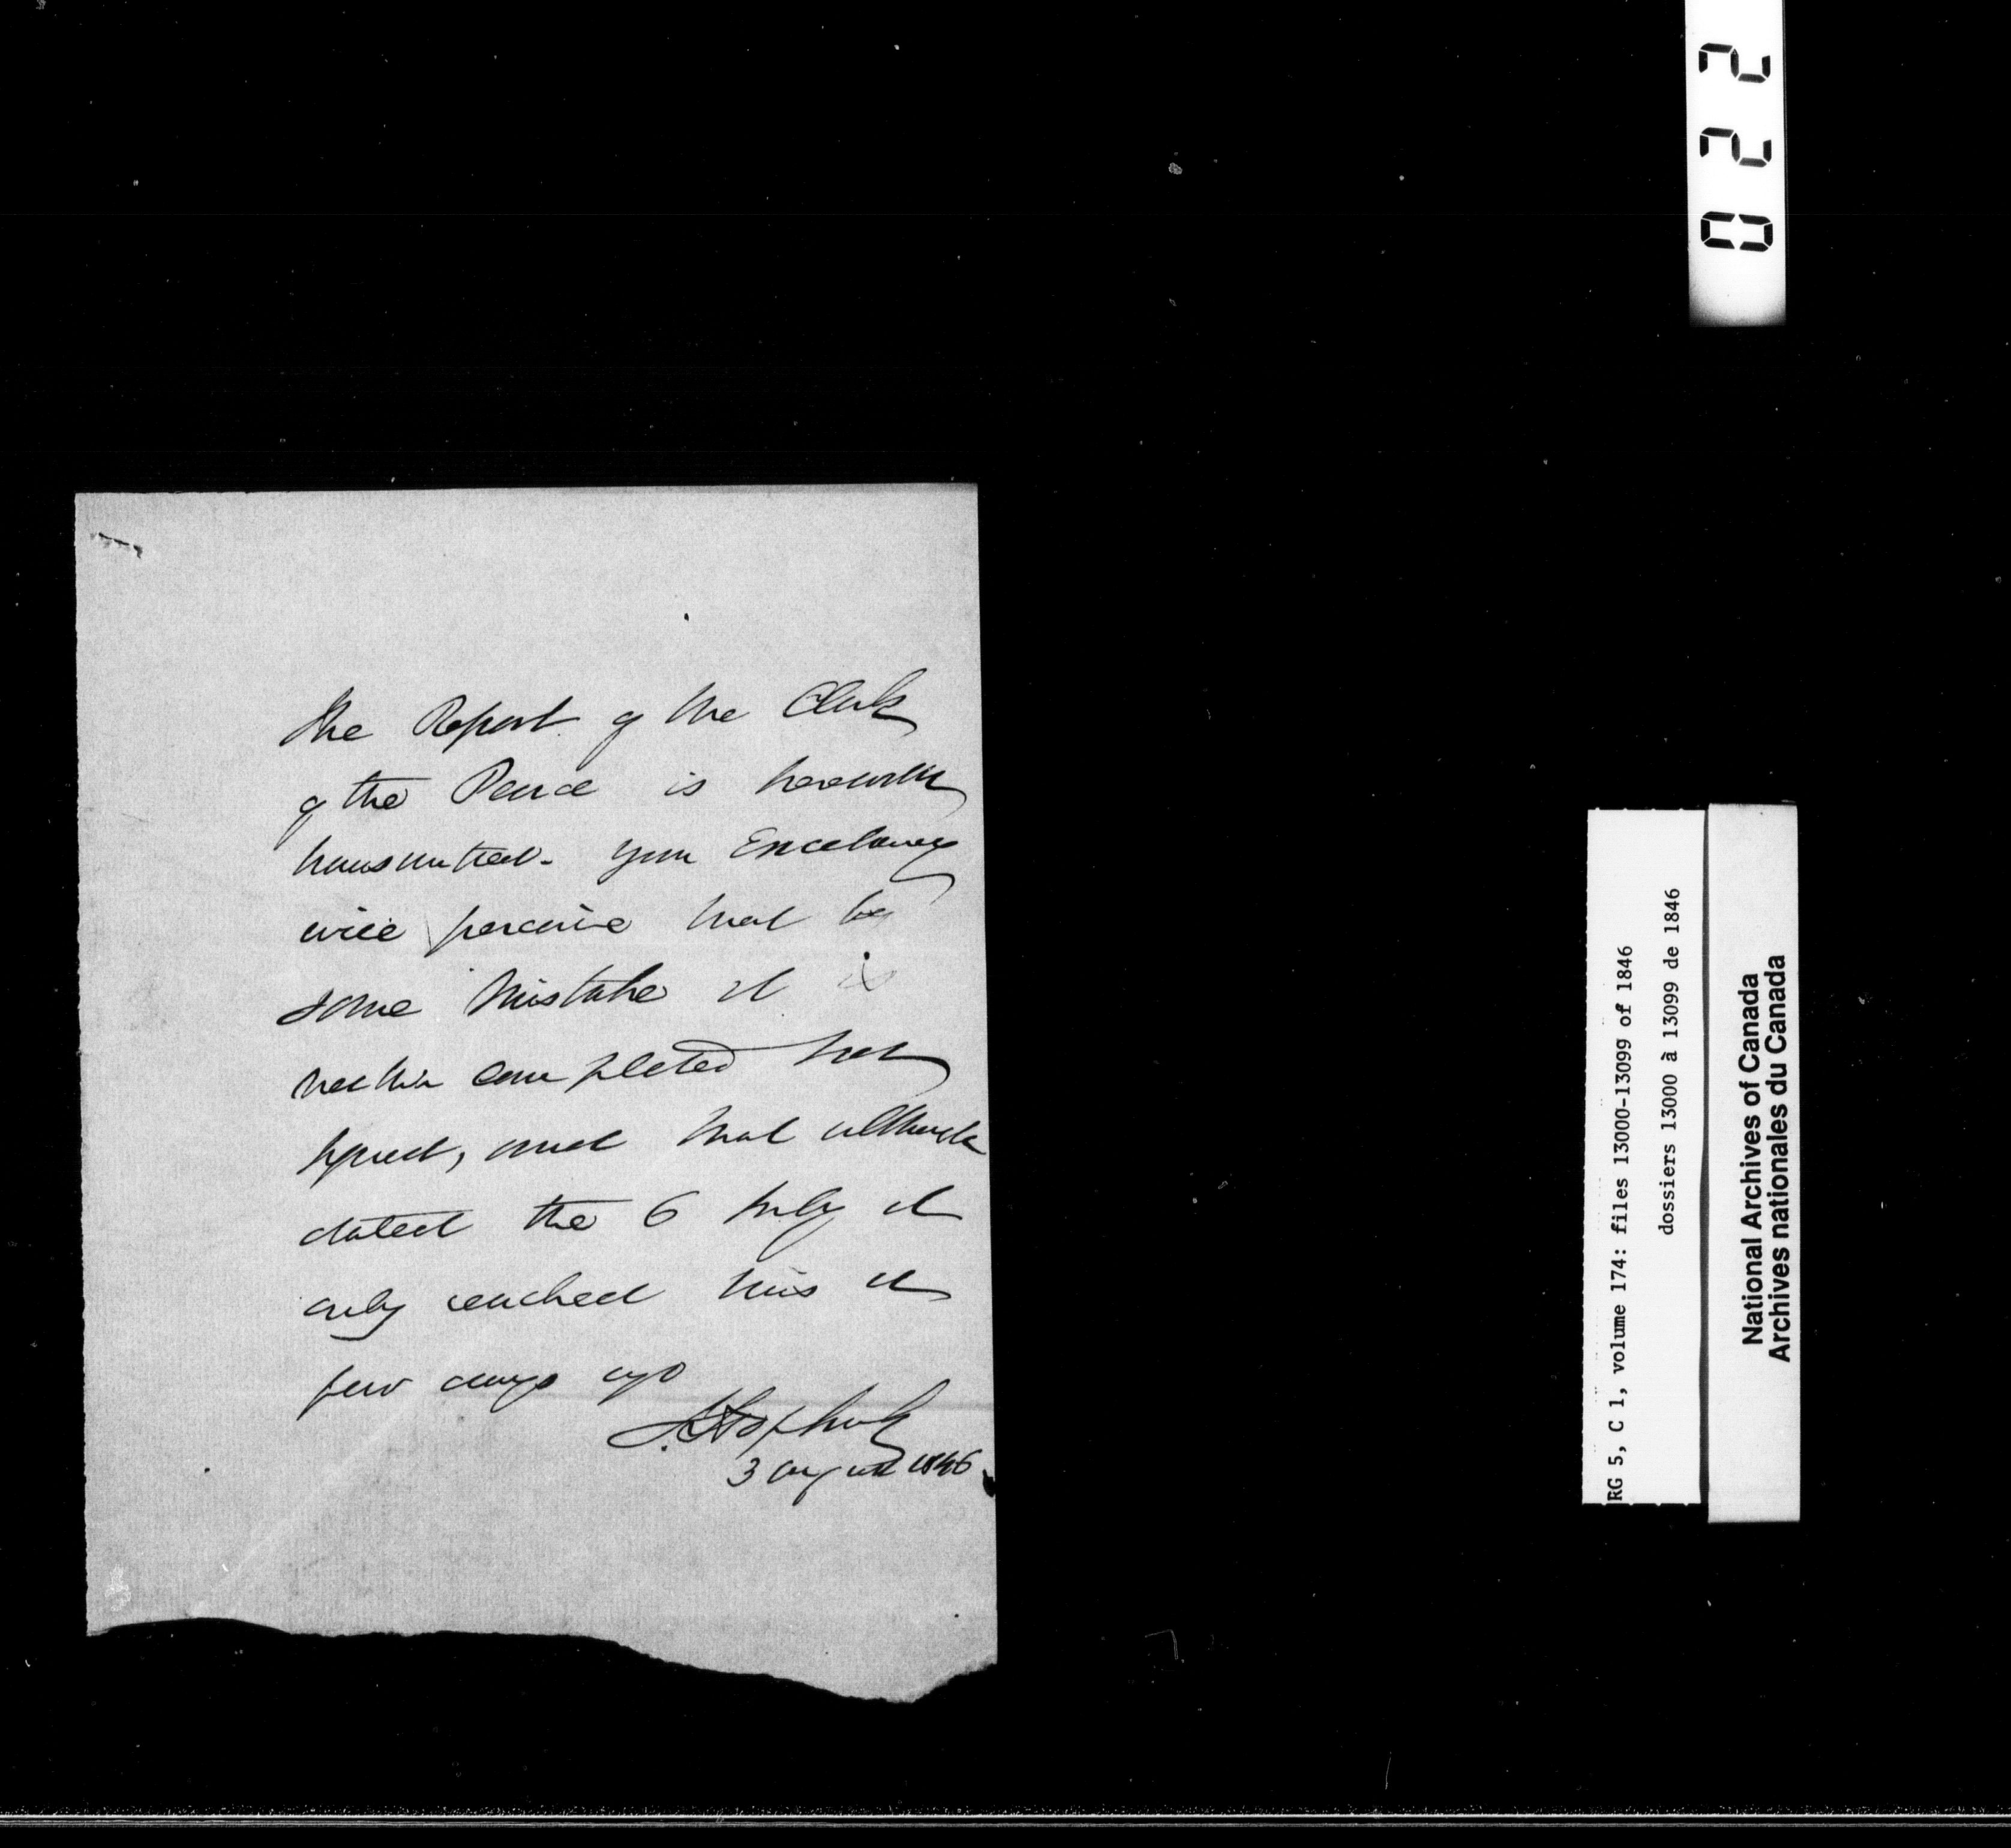 The Report of the Clerk
of the Peace is herewith
transmitted. Your Excellency
will perceive that by
some mistake it is
neither completed nor
signed, and that although
dated the 6 July it
only reached this a
few days ago
3 August 1846
022
RG 5, C 1, volume 174: files 13000-13099 of 1846
dossiers 13000 à 13099 de 1846
National Archives of Canada
Archives nationales du Canada